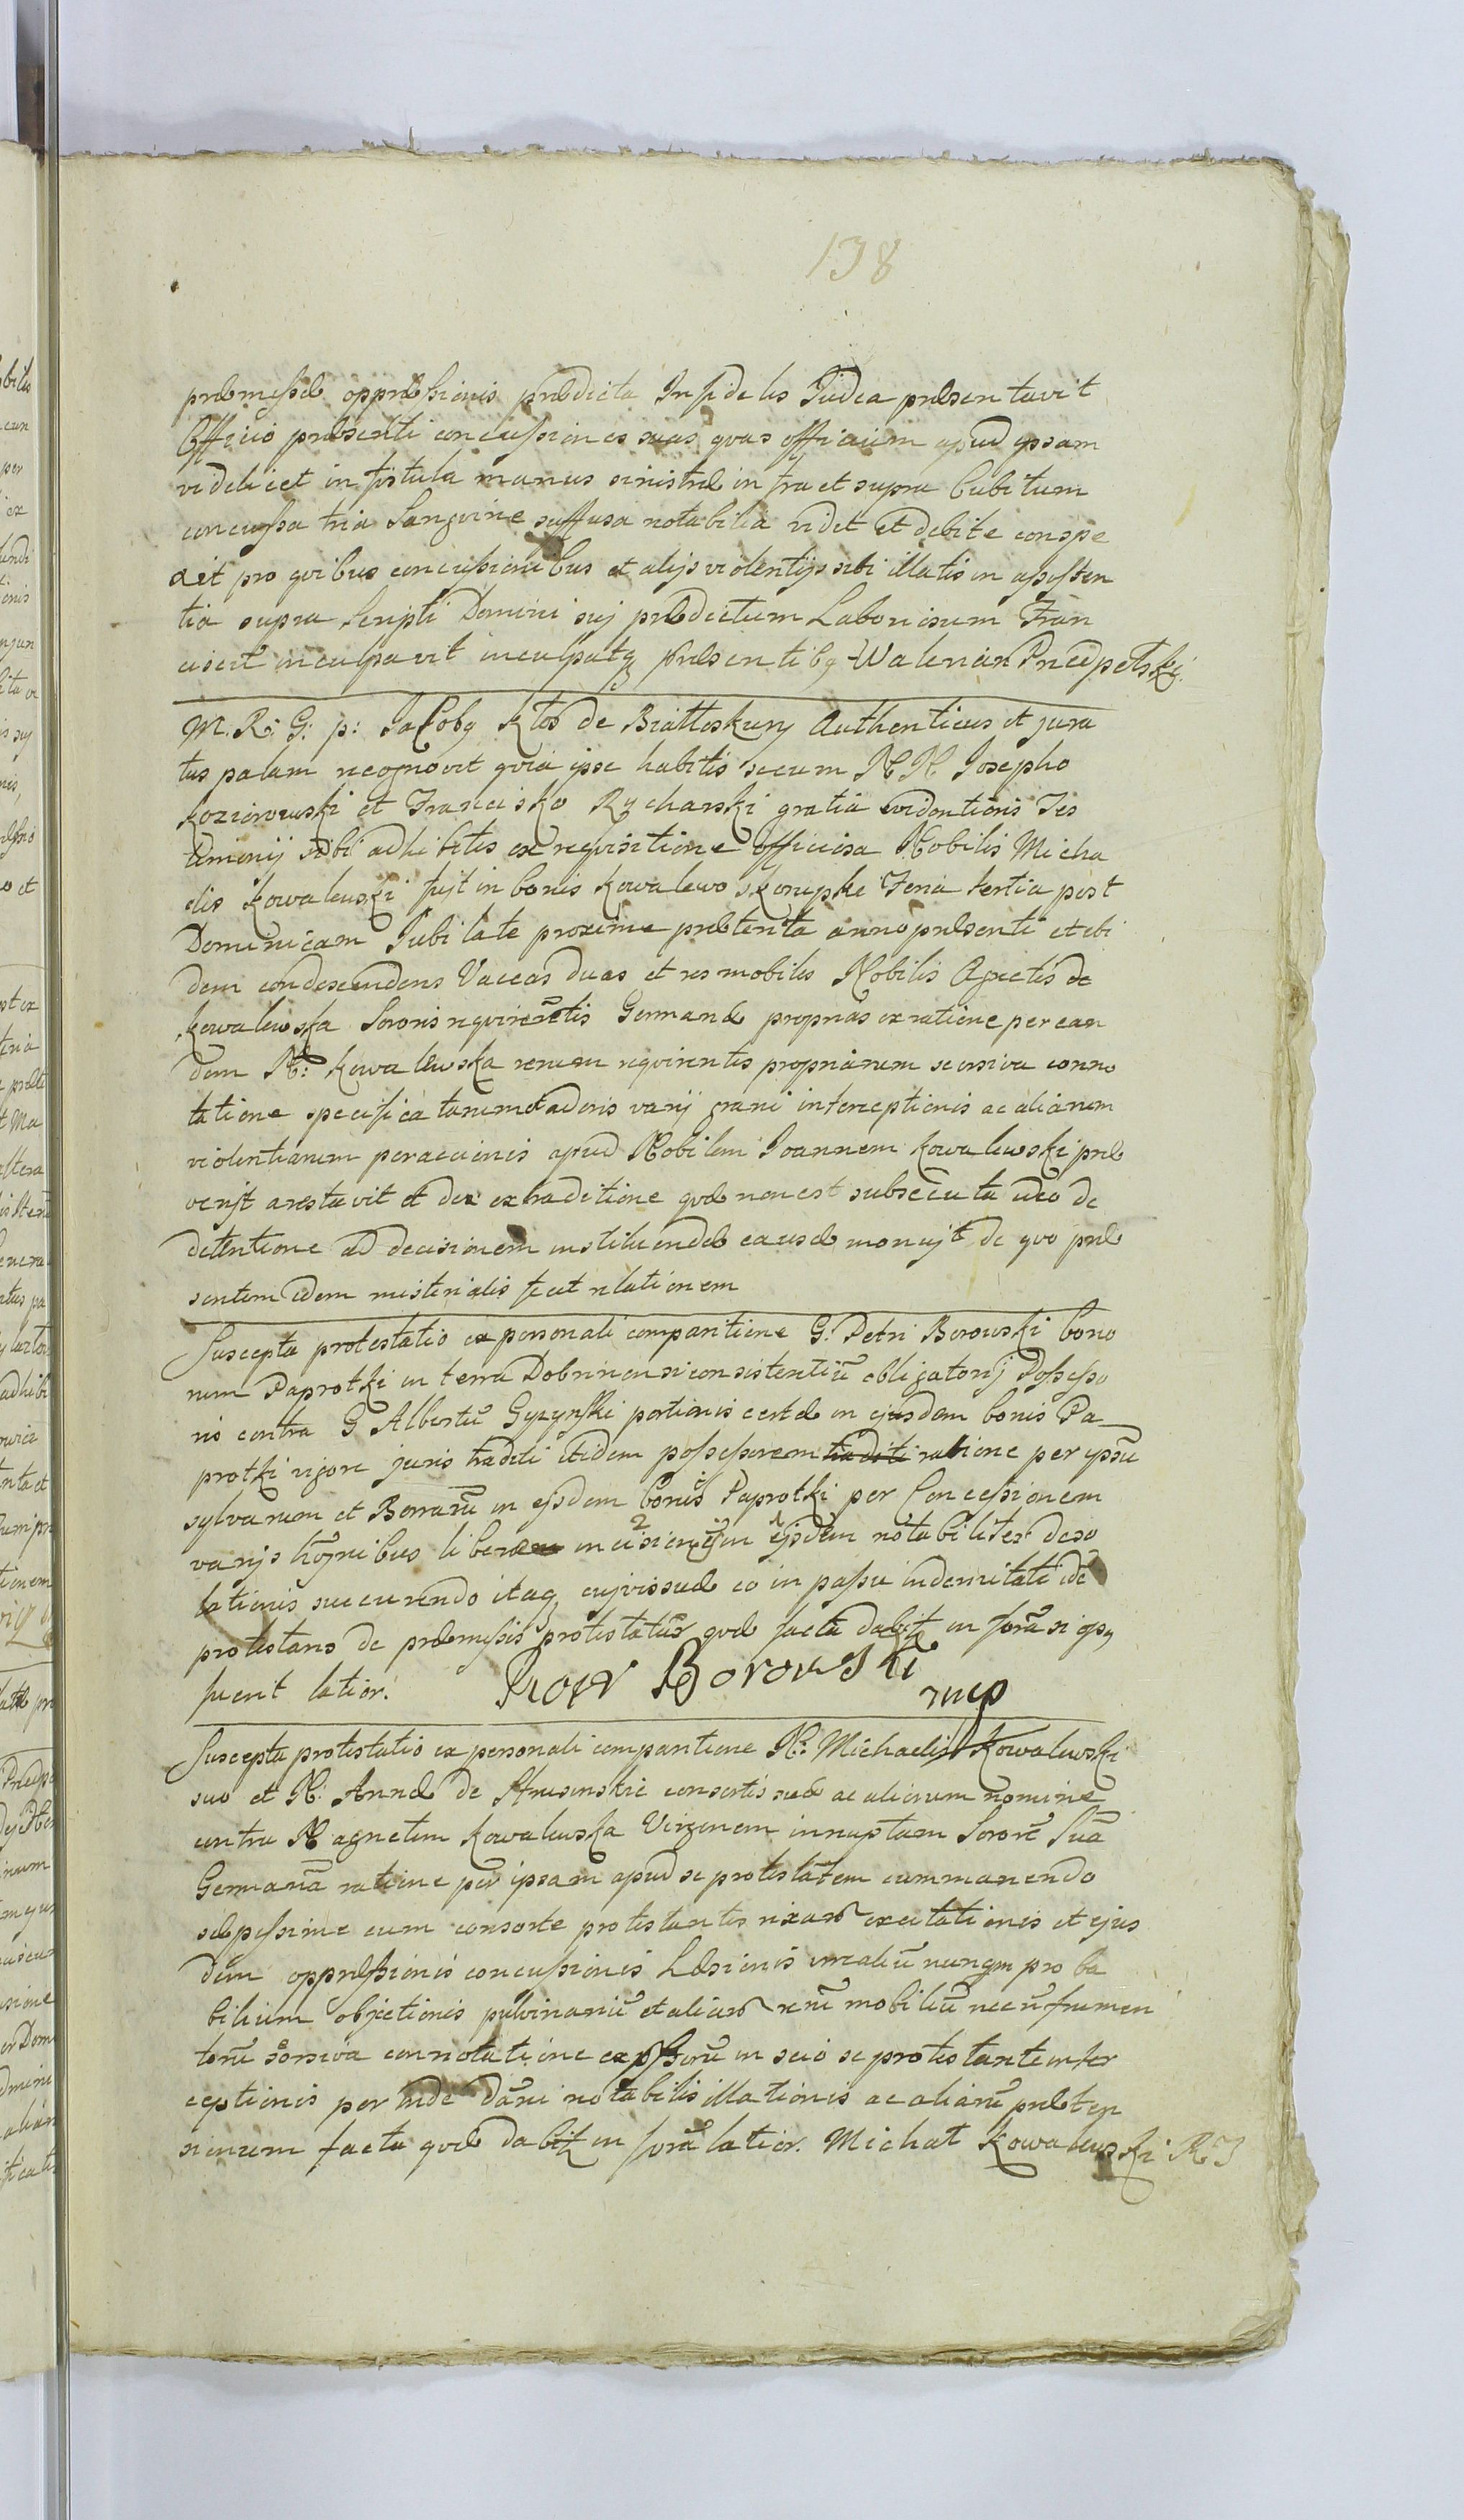 138
præmissæ oppræssionis prædicta Infidelis Judea præsentavit
Officio præsenti concussiones suas quas officium apud ipsam
videlicet in fistula manus sinistræ infra et supra Cubitum
concussa tria Sanguine suffusa notabilia videt et debite conspe
xit pro quibus concussionibus et alijs violentijs sibi illatis in assisten
tia supra Scripti Domini suj prædictum Laboriosum Fran
ciscū inculpavit inculpatq præsentibq Walerian
M. R: G: p: Jacobq Kłos de Białłoskury Authenticus et jura
tus palam recognovit quia ipse habitis secum N N Josepho
Koziorowski et Francisko Rycharski gratia evidentioris Tes
timonij sibi adhibitis ex requisitione officiosa Nobilis Micha
elis Kowalewski fujt in bonis Kowalewo skorupki Feria tertia post
Dominicam Jubilate proxime præterita anno præsenti et ibi
dem condescendens Vaccas duas et res mobiles Nobilis Agnetis de
Kowalewska Sororis requirentis Germanæ proprias ex ratione per ean
dem N: Kowalewska rerum requirentis propriarum seorsiva conno
tatione specificatarum ac varij grani interceptionis ac aliarum
violentiarum peractionis apud Nobilem Joannem Kowalewski præ
venit arestavit et de extraditione quæ non est subsecuta ideo de
detentione ad decisionem instituendæ causæ monujt de quo præ
sentem idem misterialis fecit relationem
Suscepta protestatio ex personali comparitione G: Petri Borowski bono
rum Paprotki in terra Dobrinensi consistentiū obligatorij Possesso
ris contra G Albertū Gyzynski portionis certæ in ejusdem bonis Pa
protki vigore juris traditi itidem possessorem traditi ratione per ipsū
sylvarum et Borrarū in ejsdem bonis Paprotki per Concessionem
varijs hoībus liberæ incisionis in ejsdem notabiliter deso
lationis succurendo itaq cujvis suæ eo in passu indemnitati idē
protestans de præmissis protestatur quæ facta dabitz in forā si opq
fuerit latior. Piotr Borowski
mp
Suscepta protestatio ex personali comparitione N: Michaelis Kowalewski
suo et N: Annæ de Strusinskie consortis suæ ac aliorum nomine
contra N agnetem Kowalewska Virginem innuptam Sororē Suā
Germanā ratione per ipsam apud se protestātem commanendo
sæpissime cum consorte protestantis rixarū excitationis et ejus
dem oppræssionis concussionis Læsionis verbaliū nunqm proba
bilium objectionis pulvinariū et aliarū rerū mobiliū necnō frumen
torū seorsiva connotatione expssorū in scio se protestante inter
ceptionis per inde dāni notabilis illationis ac aliarū præten
sionum facta quæ dabitz in forā latior. Michał Kowalewski R J